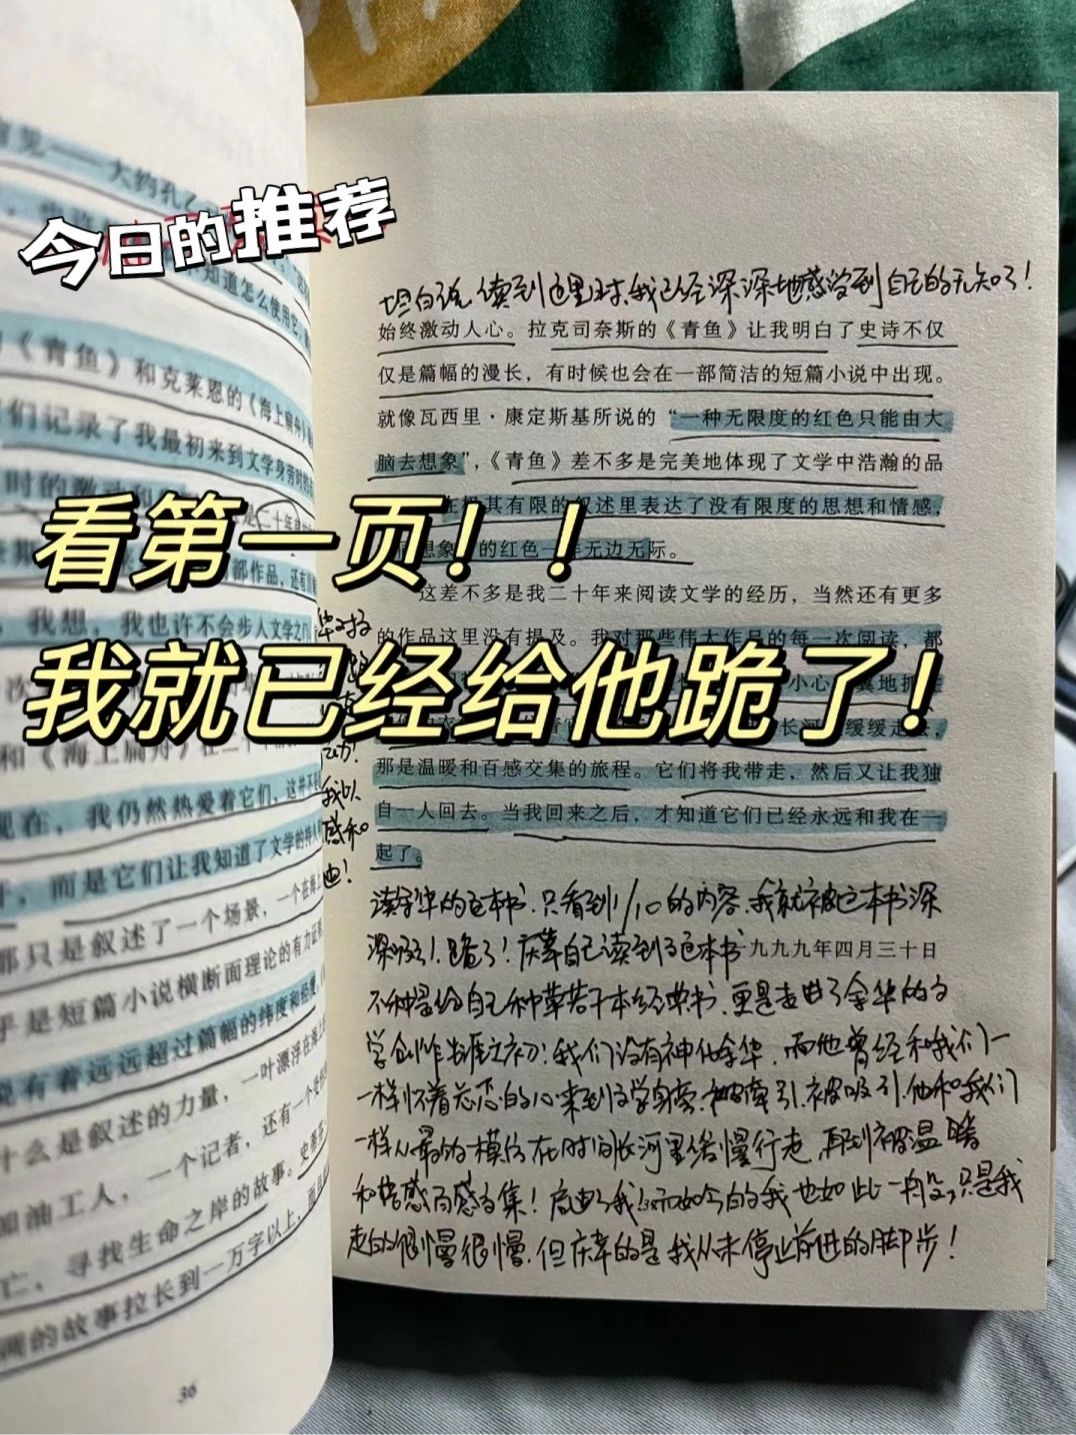 今日的推荐
看第一页！！
我就已经给他跪了！
——大约孔乙
知道怎么使用它，
《青鱼》和克莱恩的《海上扁舟》
们记录了我最初来到文学身旁时的
时的激动和
是二十年
部作品，还有
我想，我也许不会步入文学之门
和《海上扁舟》在二十年
现在，我仍然热爱着它们，这并不是
而是它们让我知道了文学的持久
那只是叙述了一个场景，一个在海上
乎是短篇小说横断面理论的有力证
说有着远远超过篇幅的纬度和经度。
什么是叙述的力量，一叶漂浮在海上
加油工人，一个记者，还有一个受伤
亡、寻找生命之岸的故事。史蒂芬
调的故事拉长到一万字以上，而且
36
坦白说，读到这里时，我已经深深地感受到自己的无知了！
始终激动人心。拉克司奈斯的《青鱼》让我明白了史诗不仅
仅是篇幅的漫长，有时候也会在一部简洁的短篇小说中出现。
就像瓦西里·康定斯基所说的“一种无限度的红色只能由大
脑去想象”，《青鱼》差不多是完美地体现了文学中浩瀚的品
在极其有限的叙述里表达了没有限度的思想和情感，
想象的红色一样无边无际。
这差不多是我二十年来阅读文学的经历，当然还有更多
的作品这里没有提及。我对那些伟大作品的每一次阅读，都
小心翼翼地抓住
长河缓缓走去，
那是温暖和百感交集的旅程。它们将我带走，然后又让我独
自一人回去。当我回来之后，才知道它们已经永远和我在一
起了。
读余华的这本书，只看到1/10的内容，我就被这本书深
深吸引！跪了！庆幸自己读到了这本书
一九九九年四月三十日
不仅是给自己种草若干本经典书，更是走进了余华的文
学创作生涯之初！我们没有神化余华，而他曾经和我们一
一样怀着忐忑的心来到文学身旁，被牵引，被吸引，他和我们
一样从最初的模仿在时间长河里缓慢行走，再到被温暖
和情感百感交集！启迪了我！而如今的我也如此一般，只是我
走的很慢很慢，但庆幸的是我从未停止前进的脚步！